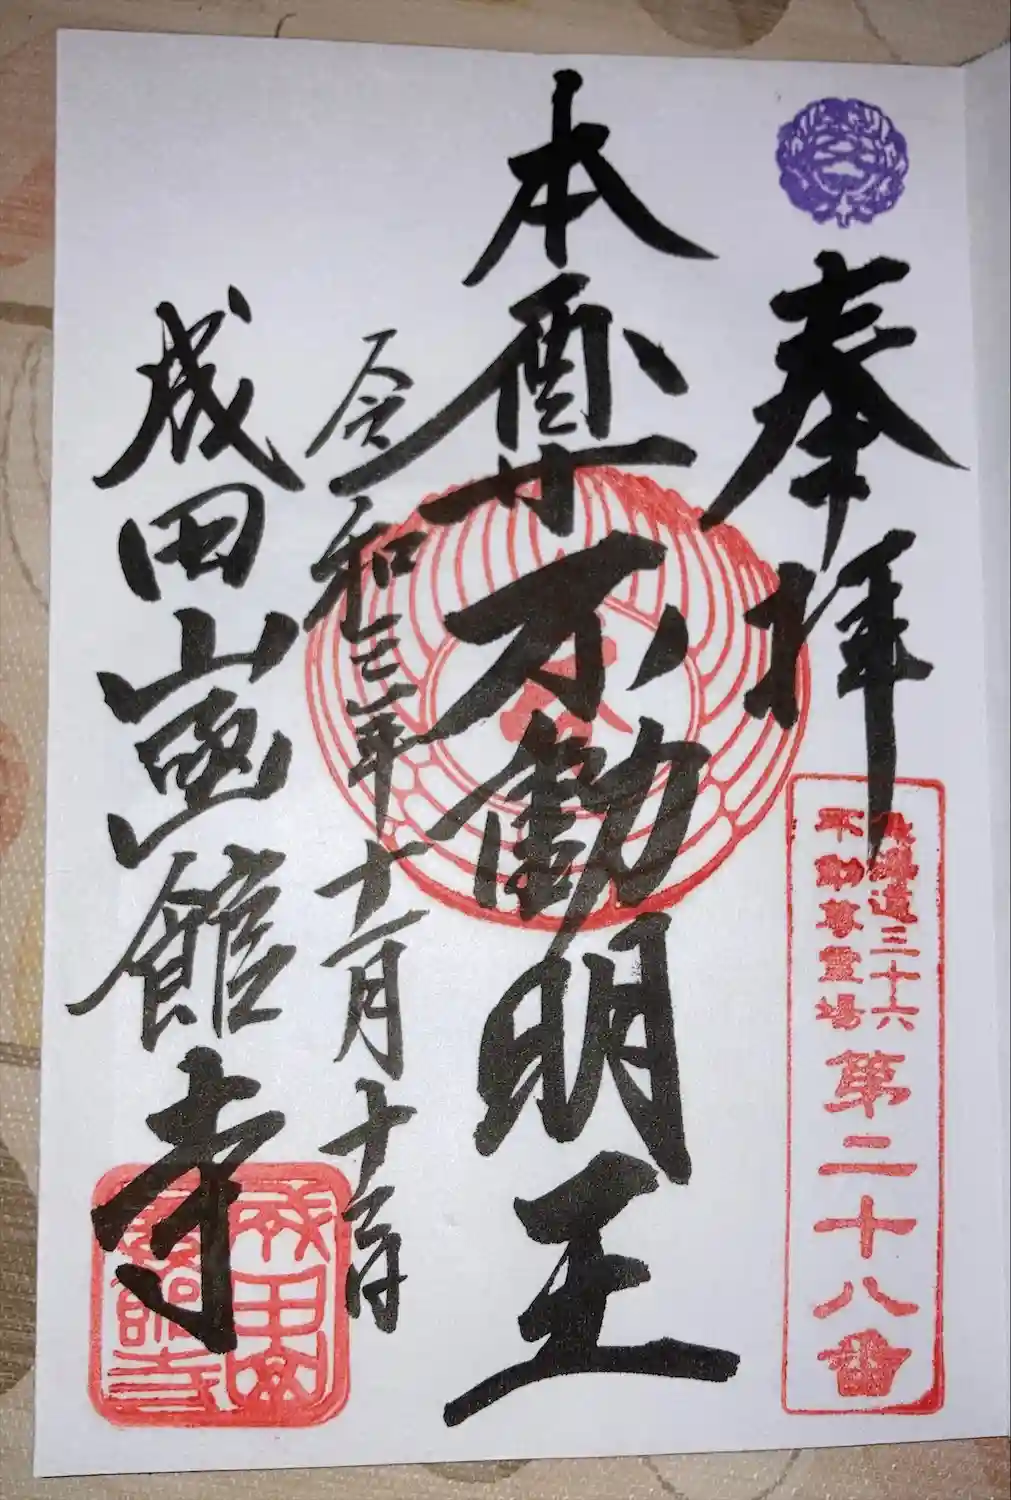 奉拝
北海道三十六
不動尊霊場
第二十八番
本尊不動明王
令和三年十一月十六日
成田山函館寺